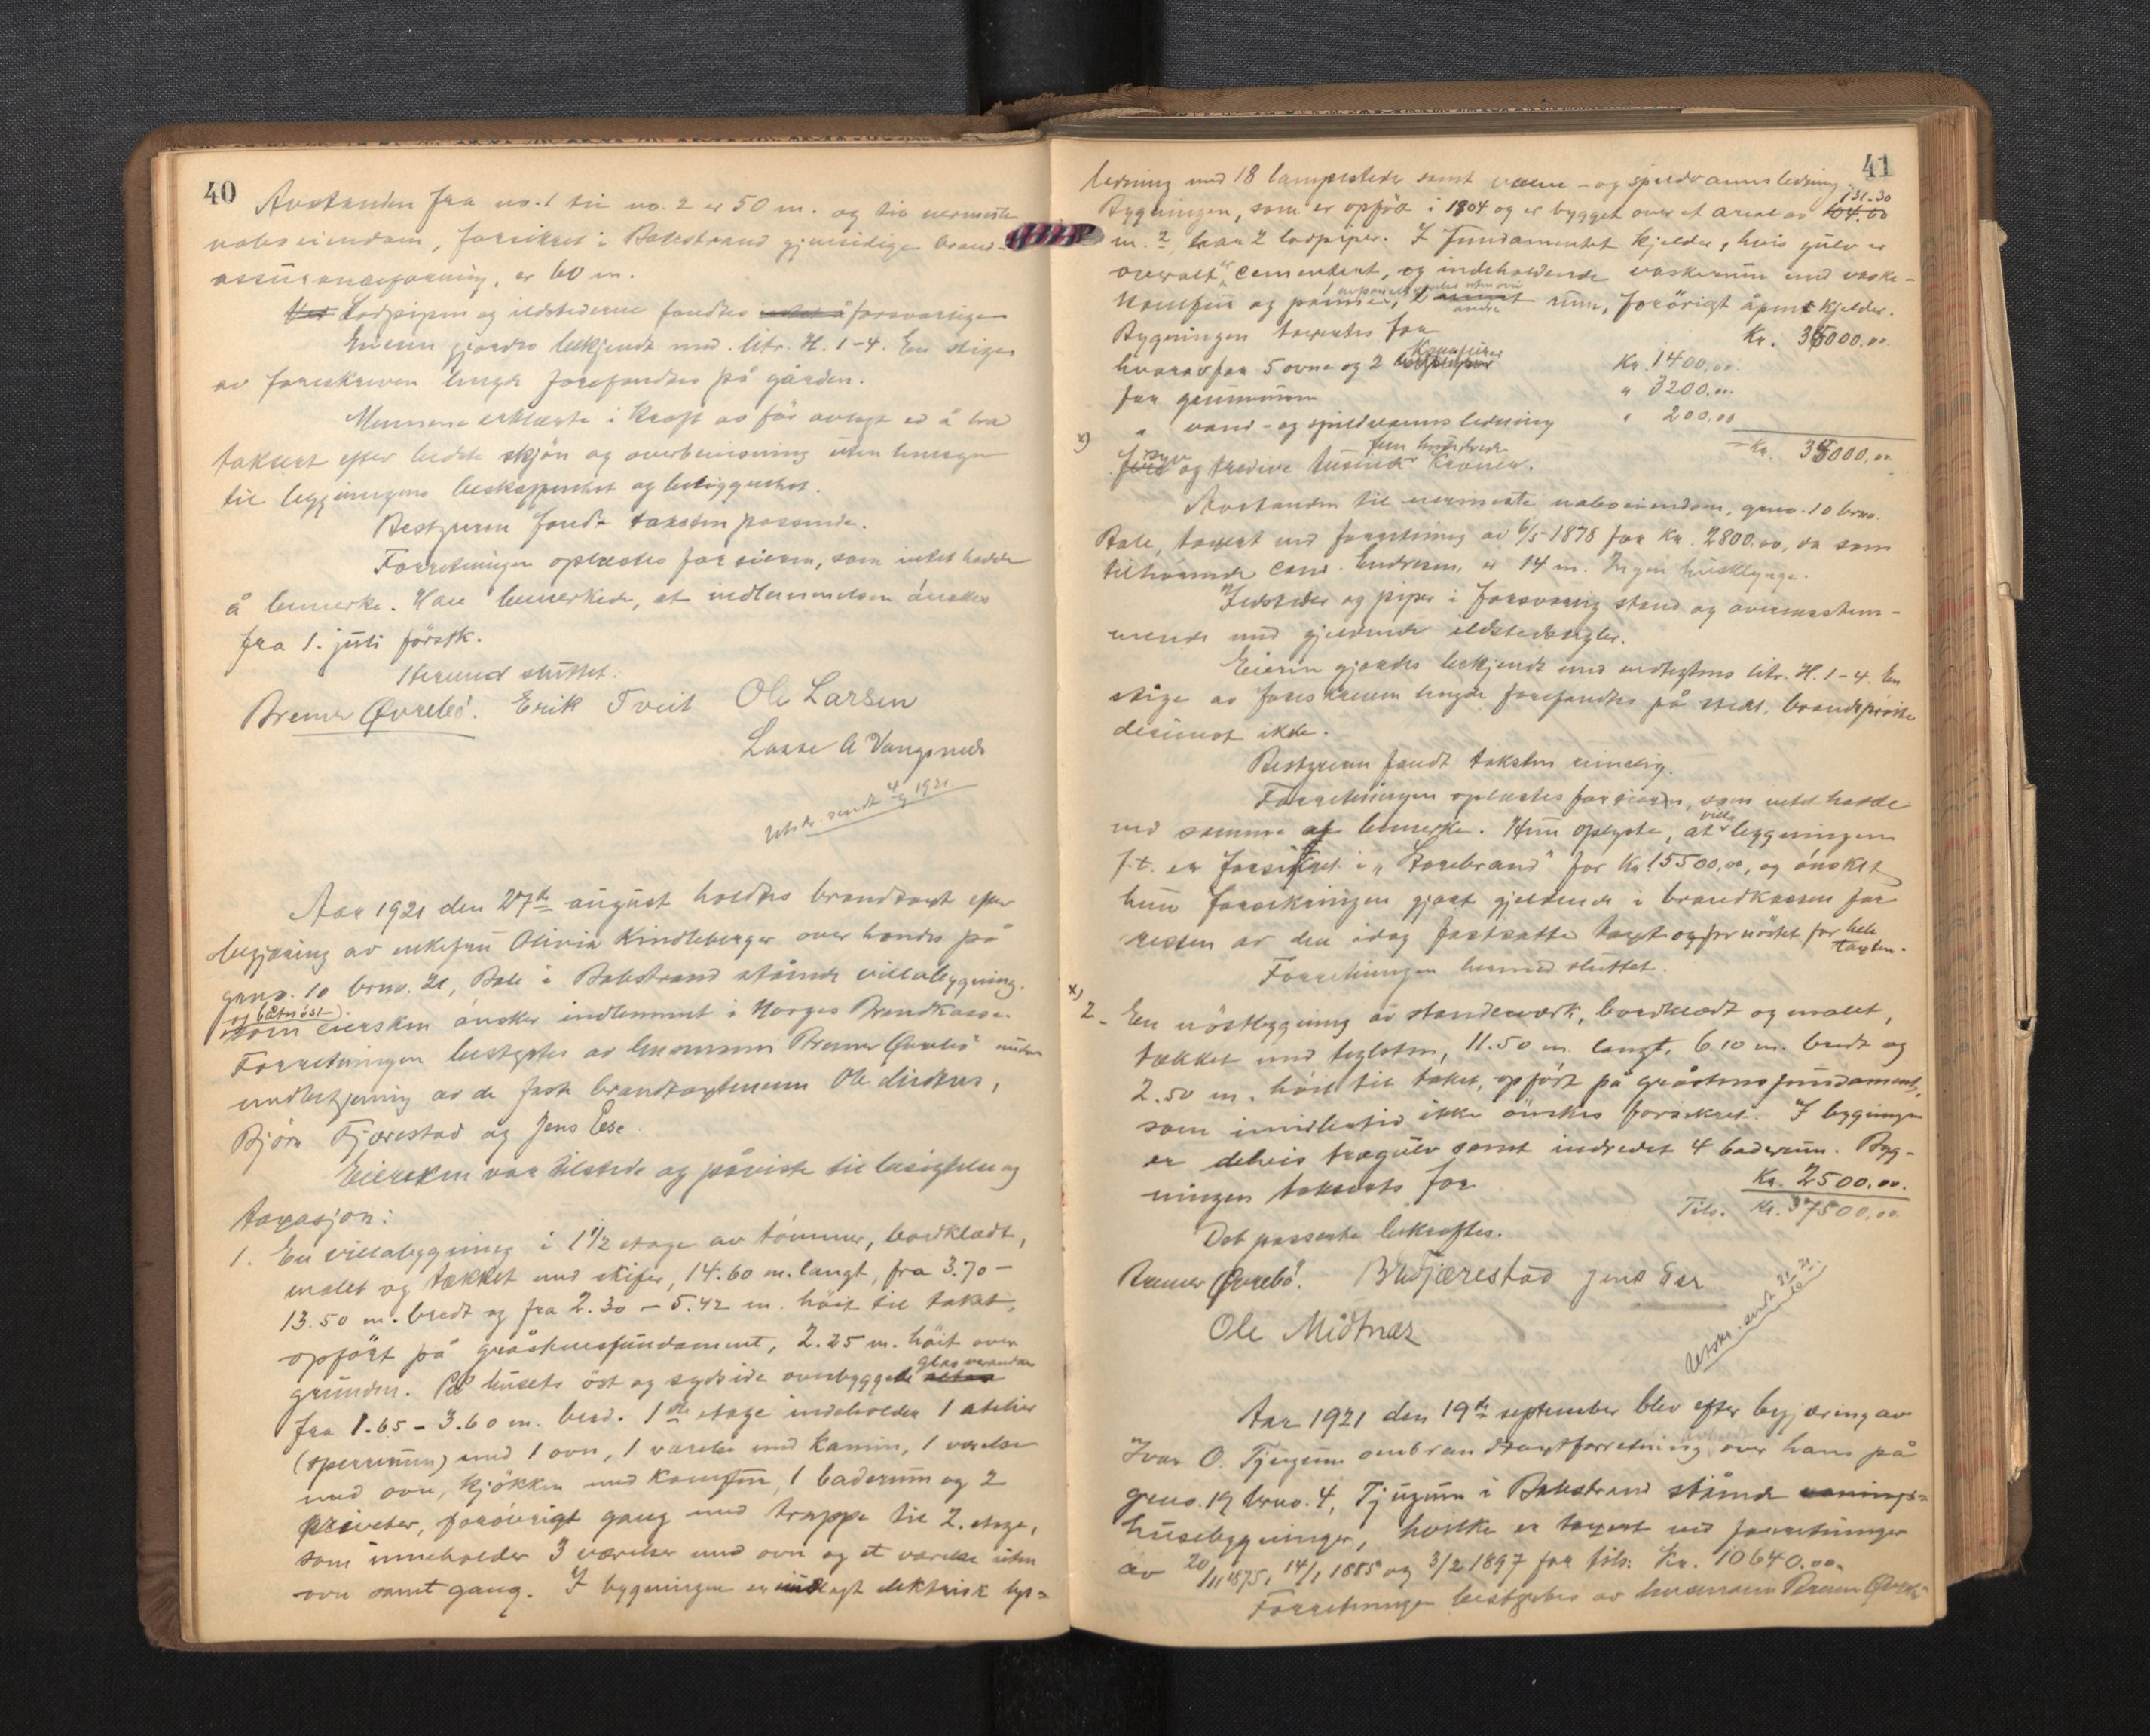 40
Avstanden fra no. 1 til no. 2 er 50 m. og til nærmeste
naboeiendom, forsikret i Balestrand gjensidige brand-
assuranceforening, er 60 m.
Lodpipen og ildstederne fandtes forsvarlige
Eieren gjordes bekjendt med litr. H. 1-4. En stige
av foreskreven længde forefandtes på gården.
Mennene erklærte i kraft av før avlagt ed å ha
taksert efter bedste skjön og overbevisning uten hensyn
til bygningens beskaffenhet og beliggenhet.
Bestyreren fandt taksten passende.
Forretningen oplæstes for eieren, som intet hadde
å bemerke. Han bemerkede, at indlemmelsen önskes
fra 1. juli förstk.
Hermed sluttet.
Bremer Øvrebö. Erik Tveit Ole Larsen
Lasse A Vangsnes
Utskr. sendt 4/9 1921
Aar 1921 den 27de august holdtes brandtaxt efter
begjæring av enkefru Olivia Kindleberger over hendes på
gno. 10 brno. 21, Bale i Balestrand stående villabygning
og båtnöst
som eiersken önsker indlemmet i Norges Brandkasse.
Forretningen bestyrtes av lensmann Bremer Øvrebö under
medbetjening av de faste brandtaxtmenn Ole Midtnes,
Björn Tjærestad og Jens Ese.
Eiersken var tilstede og påviste til besigtelse og
taxasjon:
1. En villabygning i 1 1/2 etage av tömmer, bordklædt,
malet og tækket med skifer, 14.60 m. langt, fra 3.70 –
13.50 m. bredt og fra 2.30 – 5.42 m. höit til taket,
opfört på gråstensfundament, 2.25 m. höit over
grunden. På husets öst og sydside overbyggede altan glasverandaer
fra 1.65 – 3.60 m. bred. 1ste etage indeholder 1 atelier
(sperrum) med 1 ovn, 1 værelse med kamin, 1 værelse
med ovn, kjökken med komfur, 1 baderum og 2
priveter, forövrigt gang med trappe til 2. etage,
som inneholder 3 værelser med ovn og et værelse uten
ovn samt gang. I bygningen er indlagt elektrisk lys-
41
ledning med 18 lampesteder samt vann- og spildvannsledning.
131.30
Bygningen, som er opfört i 1904 og er bygget over et areal av 104.00
m.2, har 2 lodpiper. I fundamentet kjelder, hvis gulv er
overalt cementert, og indeholdende vaskerum med vaske-
komfur og panne, 1 andre rum, forövrigt åpent kjelder.
Bygningen taxertes for Kr. 35000.00
hvorav for 5 ovne og 2 komfurer Kr. 1400.00
for grunnmuren " 3200.00
" vand- og spildvannsledning " 200.00
– Kr. 35000.00
x) syv og tredive tusinde fem hundrede kroner.
Avstanden til nærmeste naboeiendom, gno. 10 brno.
Bale, taxert ved forretning av 6/5 1878 for Kr. 2800.00, da som
tilhörende Cand. Endresen, er 14 m. Ingen husklynge.
Ildsteder og piper i forsvarlig stand og overensstem-
mende med gjeldende ildstedsregler.
Eieren gjordes bekjendt med vedtektens litr. H. 1-4. En
stige av foreskreven længde forefandtes på stedet, brandspröite
derimot ikke.
Bestyreren fandt taksten rimelig.
Forretningen oplæstes for eieren, som intet hadde
ved samme at bemerke. Hun oplyste, at villabyggningen
f.t. er forsikret i "Storebrand" for Kr. 15500.00, og önsket
hun forsikringen gjort gjeldende i brandkassen for
resten av den idag fastsatte taxt og for nöstet for hele
taxten.
Forretningen hermed sluttet.
x)
2. En nöstbygning av standerværk, bordklædt og malet,
tækket med teglsten, 11.50 m. langt, 6.10 m. bredt og
2.50 m. höit til taket, opfört på gråstensfundament,
som imidlertid ikke önskes forsikret. I bygningen
er delvis trægulv samt indredet 4 baderum. Byg-
ningen takserts for Kr. 2500.00.
Tils. Kr. 37500.00
Det passerte bekræftes.
Bremer Øvrebö. B. Tjærestad Jens Ese
Ole Midtnæs
Utskr. sendt 31/10 21
Aar 1921 den 19de september blev efter begjæring av
Ivar O. Tjugum ombrandtaxtforretning over hans på
gno. 19 brno. 4, Tjugum i Balestrand stående vånings-
husbygninger, hvilke er taxert ved forretninger
av 20/11 1875, 14/1 1885 og 3/2 1897 for tils. Kr. 10640.00.
Forretningen bestyrtes av lensmann Bremer Øvrebö